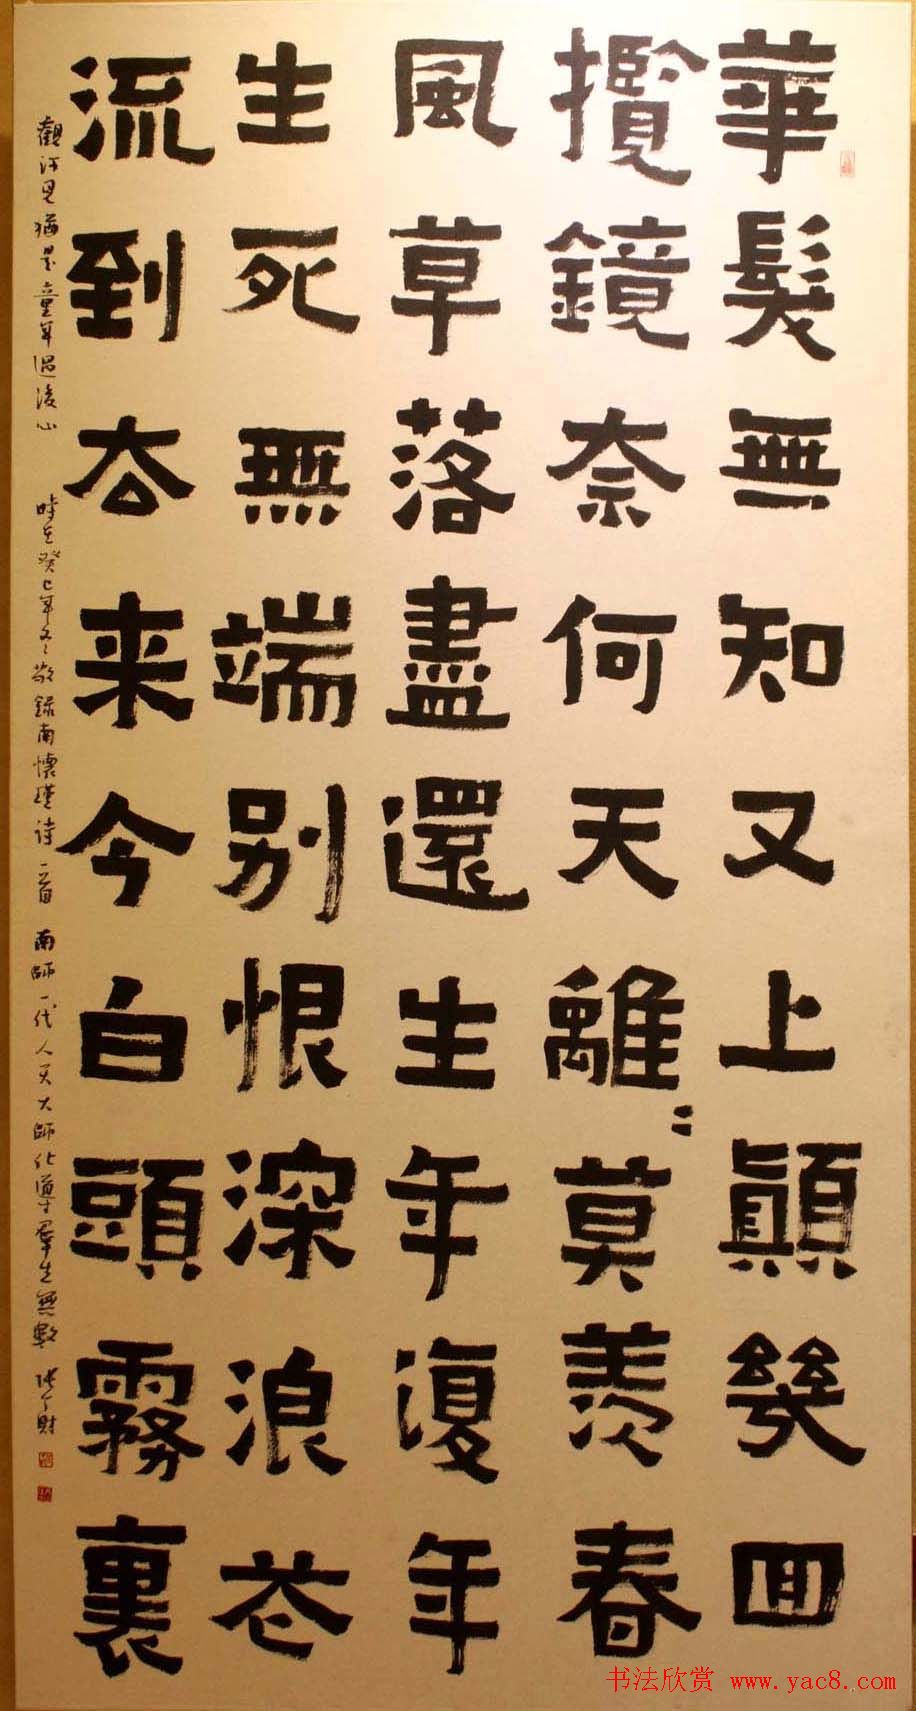 華髮無知又上顛幾回
攬鏡奈何天離〻莫羨春
風草落盡還生年復年
生死無端别恨深浪花
流到去来今白頭霧裏
觀河見猶是童年過後心 時在癸巳年冬敬錄南懷瑾詩一首 南師一代人天大師化導群生無數
书法欣赏 www.yac8.com